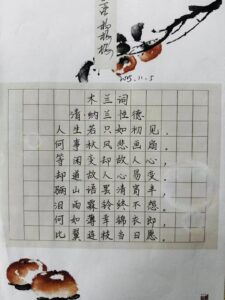 2015.11.5
木兰词
清·纳兰性德
人生若只如初见，
何事秋风悲画扇。
等闲变却故人心，
却道故人心易变。
骊山语罢清宵半，
泪雨霖铃终不怨。
何如薄幸锦衣郎，
比翼连枝当日愿。